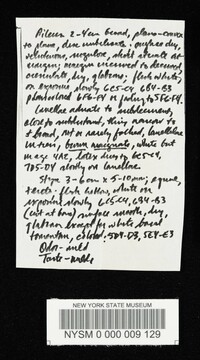 Pileus 2-4cm broad, plano-convex
to plano, disc umbilicate. surface dry,
margin incurved to decurved
dry, glabrous; flesh white,
on exposure slowly 6C5-C4, 6B4-B3
6F6-F4 or fading to 5F6-F4.
Lamellae adnate to subdecurrent
close to subdistant, thin, narrow to
broad, not or rarely forked, lamellulae
in tiers, brown marginate, white but
may 4A2, latex dries to 6C5-C4,
7D5-D4 slowly on lamellae.
Stipe 3-6cm x 5-10mm; equal,
terete. flesh hollow, white on
exposure slowly 6C5-C4, 6B4-B3
(cut at base) surface smooth, dry,
glabrous except for white basal
tomentum, colored. 5D4-D3, 5E4-E3
Odor - mild
Taste - mild
NEW YORK STATE MUSEUM
NYSM 0 000 009 129